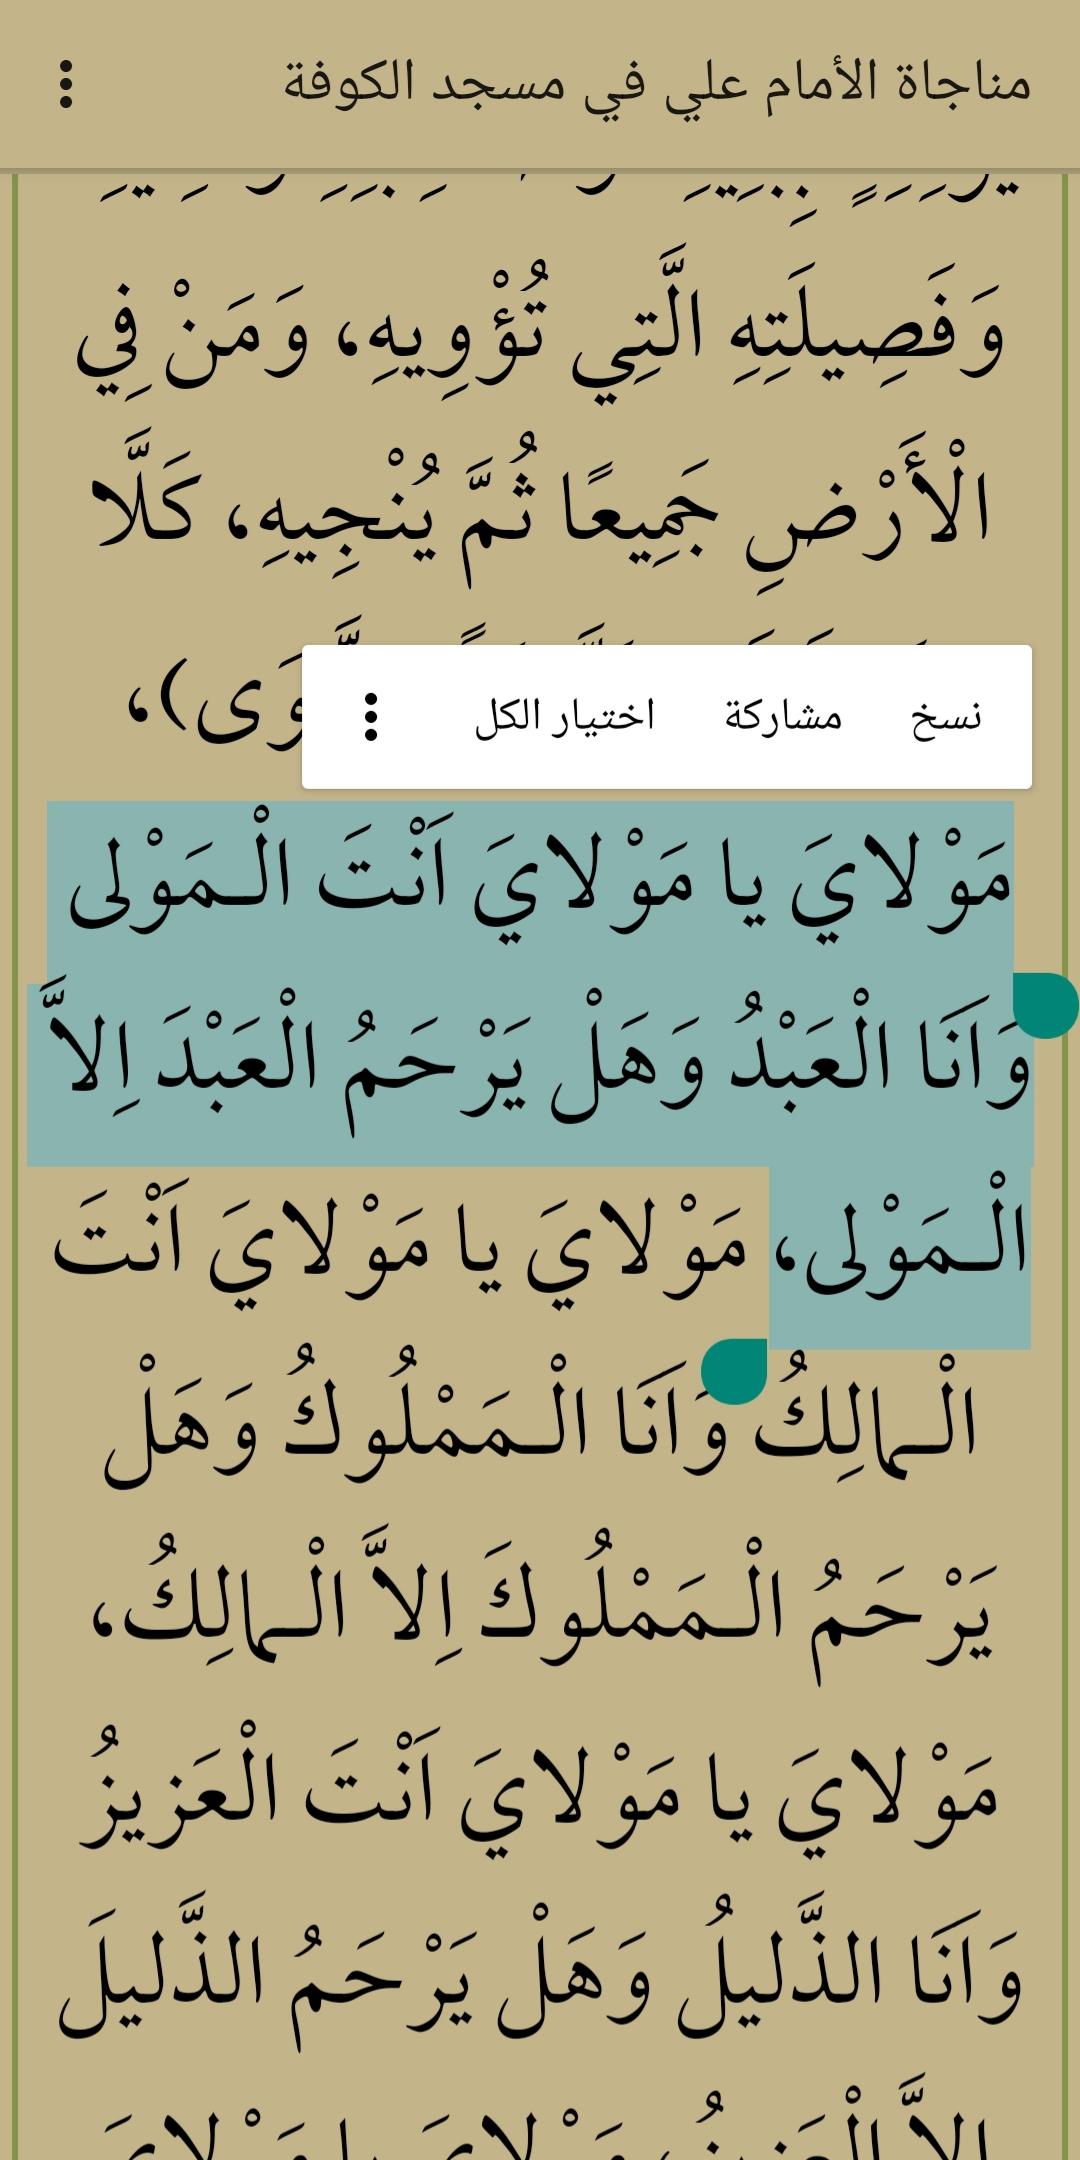 مناجاة الأمام علي في مسجد الكوفة
وَفَصِيلَتِهِ الَّتِي تُؤْوِيهِ، وَمَنْ فِي
الْأَرْضِ جَمِيعًا ثُمَّ يُنْجِيهِ، كَلَّا
نسخ مشاركة اختيار الكل
مَوْلايَ يا مَوْلايَ اَنْتَ الْـمَوْلى
وَاَنَا الْعَبْدُ وَهَلْ يَرْحَمُ الْعَبْدَ اِلاَّ
الْـمَوْلى، مَوْلايَ يا مَوْلايَ اَنْتَ
الْـمالِكُ وَاَنَا الْـمَمْلُوكُ وَهَلْ
يَرْحَمُ الْـمَمْلُوكَ اِلاَّ الْـمالِكُ،
مَوْلايَ يا مَوْلايَ اَنْتَ الْعَزيزُ
وَاَنَا الذَّليلُ وَهَلْ يَرْحَمُ الذَّليلَ